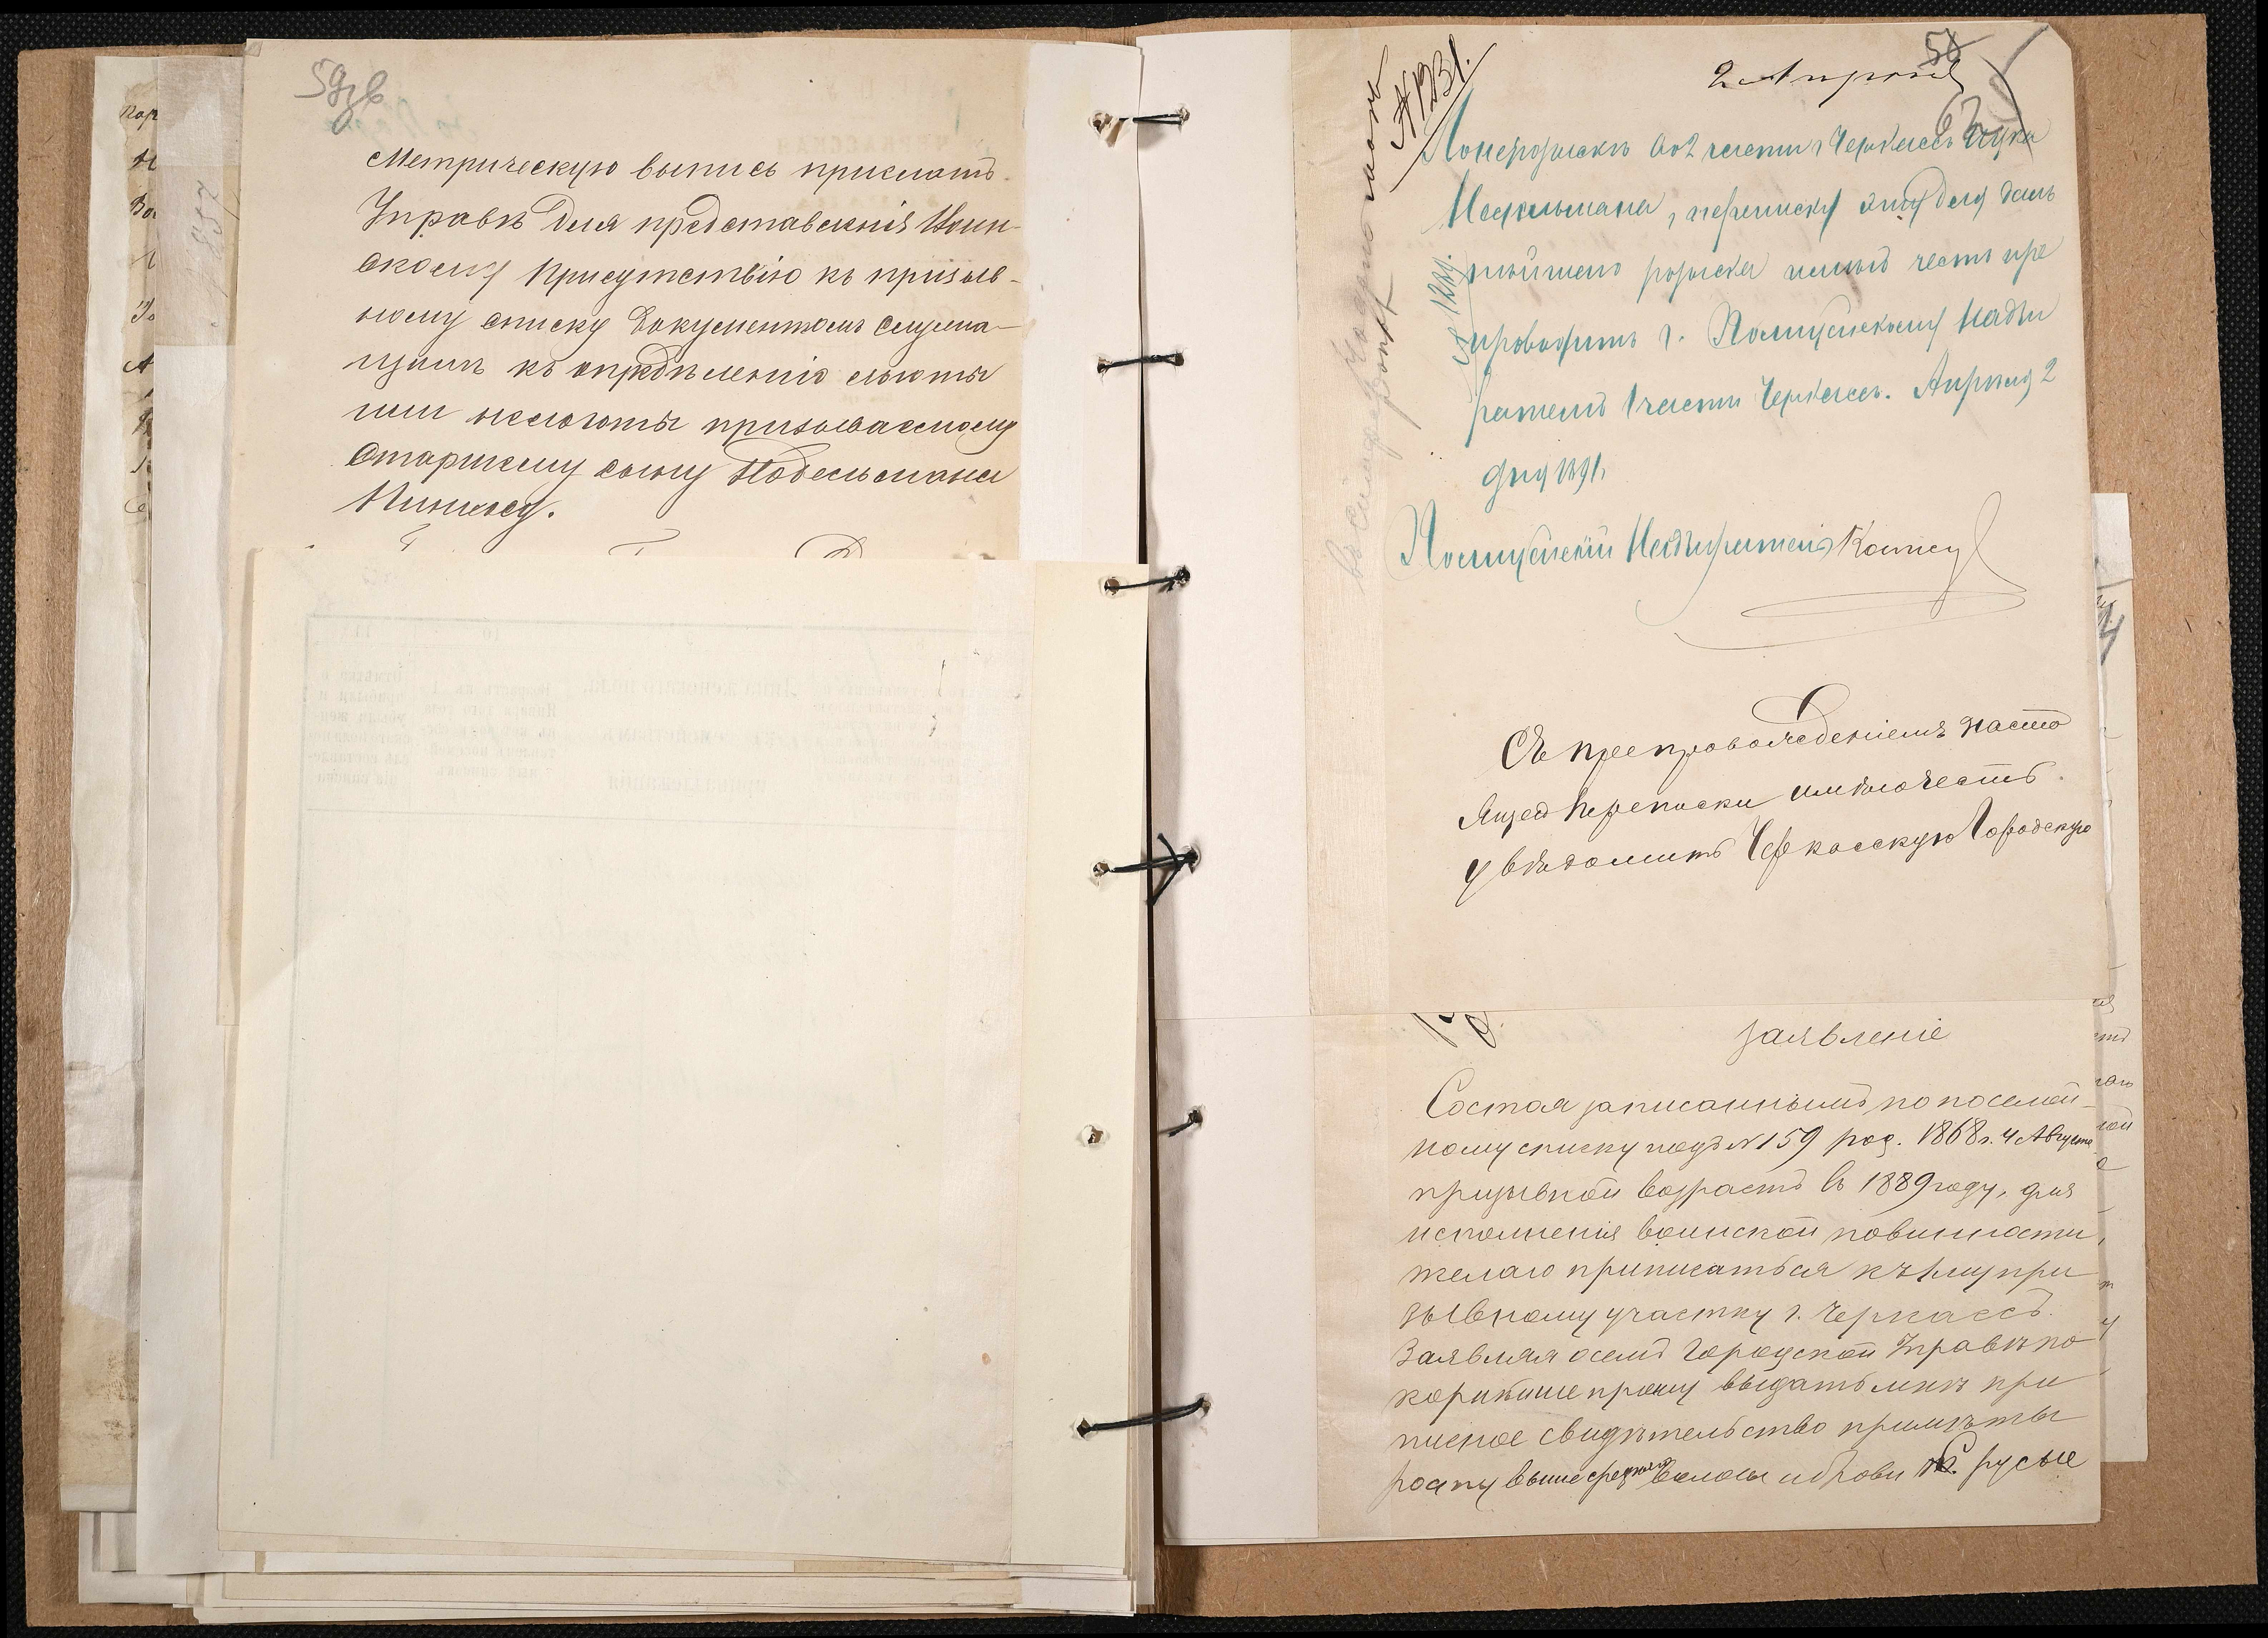 59об
Метрическую выпись прислать
Управѣ для представленія Воин-
скому Присутствію къ призыв-
ному списку документомъ служа-
щимъ къ опредѣленію льготы
или нельготы призываемому
старшему сыну Нодельмана
Пинхосу.
2 Апрѣля
62
№ 1231.
По нерозыску во 2 части г. Черкассъ Ицка
Нодельмана, переписку эту для даль
нѣйшаго розыска имѣю честь пре
проводить г. Полицейскому Надзи
рателю 1 части г. Черкассъ. Апрѣля 2
дня 1891.
Полицейскій Надзиратель
Съ препровожденіемъ насто
ящей переписки имѣю честь
увѣдомить Черкасскую Городскую
заявленіе
Состоя записаннымъ по посемей-
ному списку подъ №159 род. 1868 г. 4 Августа
призывной возрастъ въ 1889 году, для
исполненія воинской повинности,
желаю приписаться къ 1му при
зывному участку г. Черкассъ.
Заявляя о семъ Городской Управѣ по
корнѣйше прошу выдать мнѣ при
писное свидѣтельство примѣты
росту выше средняго волосы и брови русые